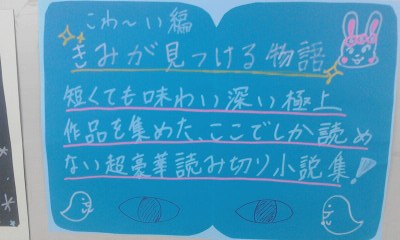 こわ～い編
きみが見つける物語
短くても味わい深い極上
作品を集めた、ここでしか読め
ない超豪華読み切り小説集!